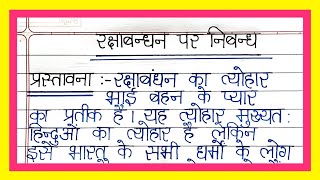 रक्षाबन्धन पर निबन्ध
प्रस्तावना :- रक्षाबंधन का त्योहार
भाई बहन के प्यार
का प्रतीक है। यह त्योहार मुख्यत:
हिन्दुओं का त्योहार है लेकिन
इसे भारत के सभी धर्मों के लोग